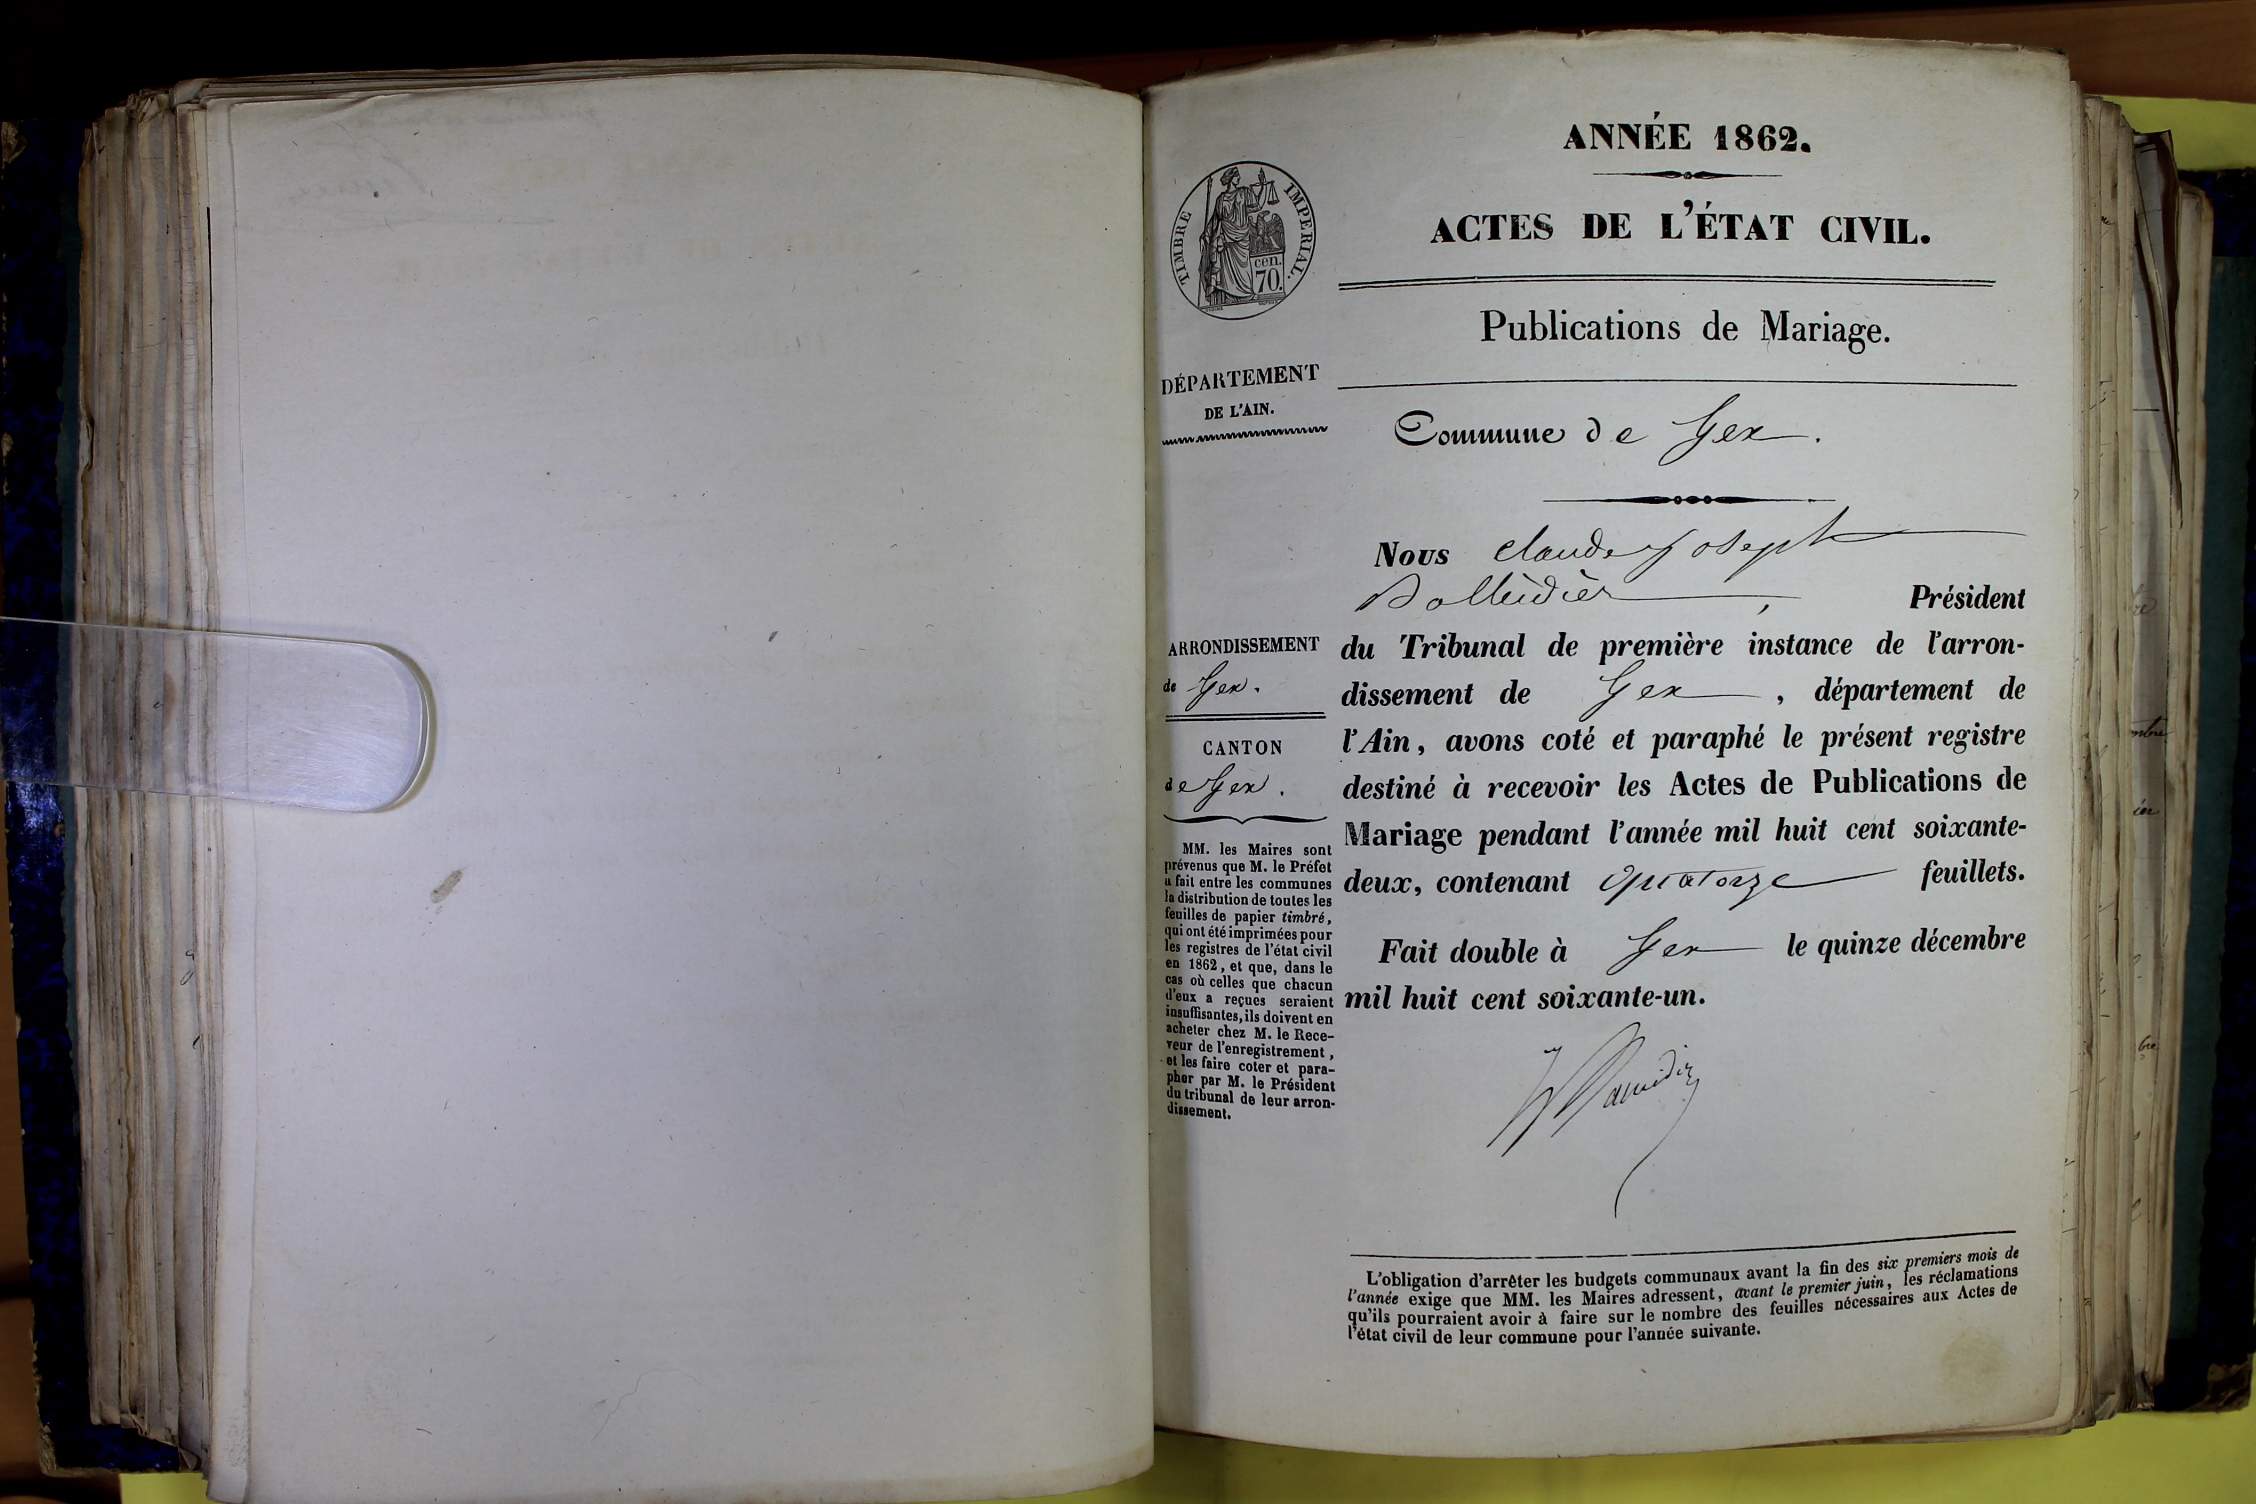 ANNÉE 1862.
ACTES DE L'ÉTAT CIVIL.
TIMBRE IMPERIAL.
cen.
70.
Publications de Mariage.
DÉPARTEMENT
DE L'AIN.
Commune de Gex.
Nous Claude Joseph
Président
ARRONDISSEMENT
de Gex.
CANTON
de Gex.
du Tribunal de première instance de l'arron-
dissement de Gex, département de
l'Ain, avons coté et paraphé le présent registre
destiné à recevoir les Actes de Publications de
Mariage pendant l'année mil huit cent soixante-
deux, contenant quatorze feuillets.
Fait double à Gex le quinze décembre
mil huit cent soixante-un.
MM. les Maires sont
prévenus que M. le Préfet
a fait entre les communes
la distribution de toutes les
feuilles de papier timbré,
qui ont été imprimées pour
les registres de l'état civil
en 1862, et que, dans le
cas où celles que chacun
d'eux a reçues seraient
insuffisantes, ils doivent en
acheter chez M. le Rece-
veur de l'enregistrement,
et les faire coter et para-
pher par M. le Président
du tribunal de leur arron-
dissement.
L'obligation d'arrêter les budgets communaux avant la fin des six premiers mois de
l'année exige que MM. les Maires adressent, avant le premier juin, les réclamations
qu'ils pourraient avoir à faire sur le nombre des feuilles nécessaires aux Actes de
l'état civil de leur commune pour l'année suivante.